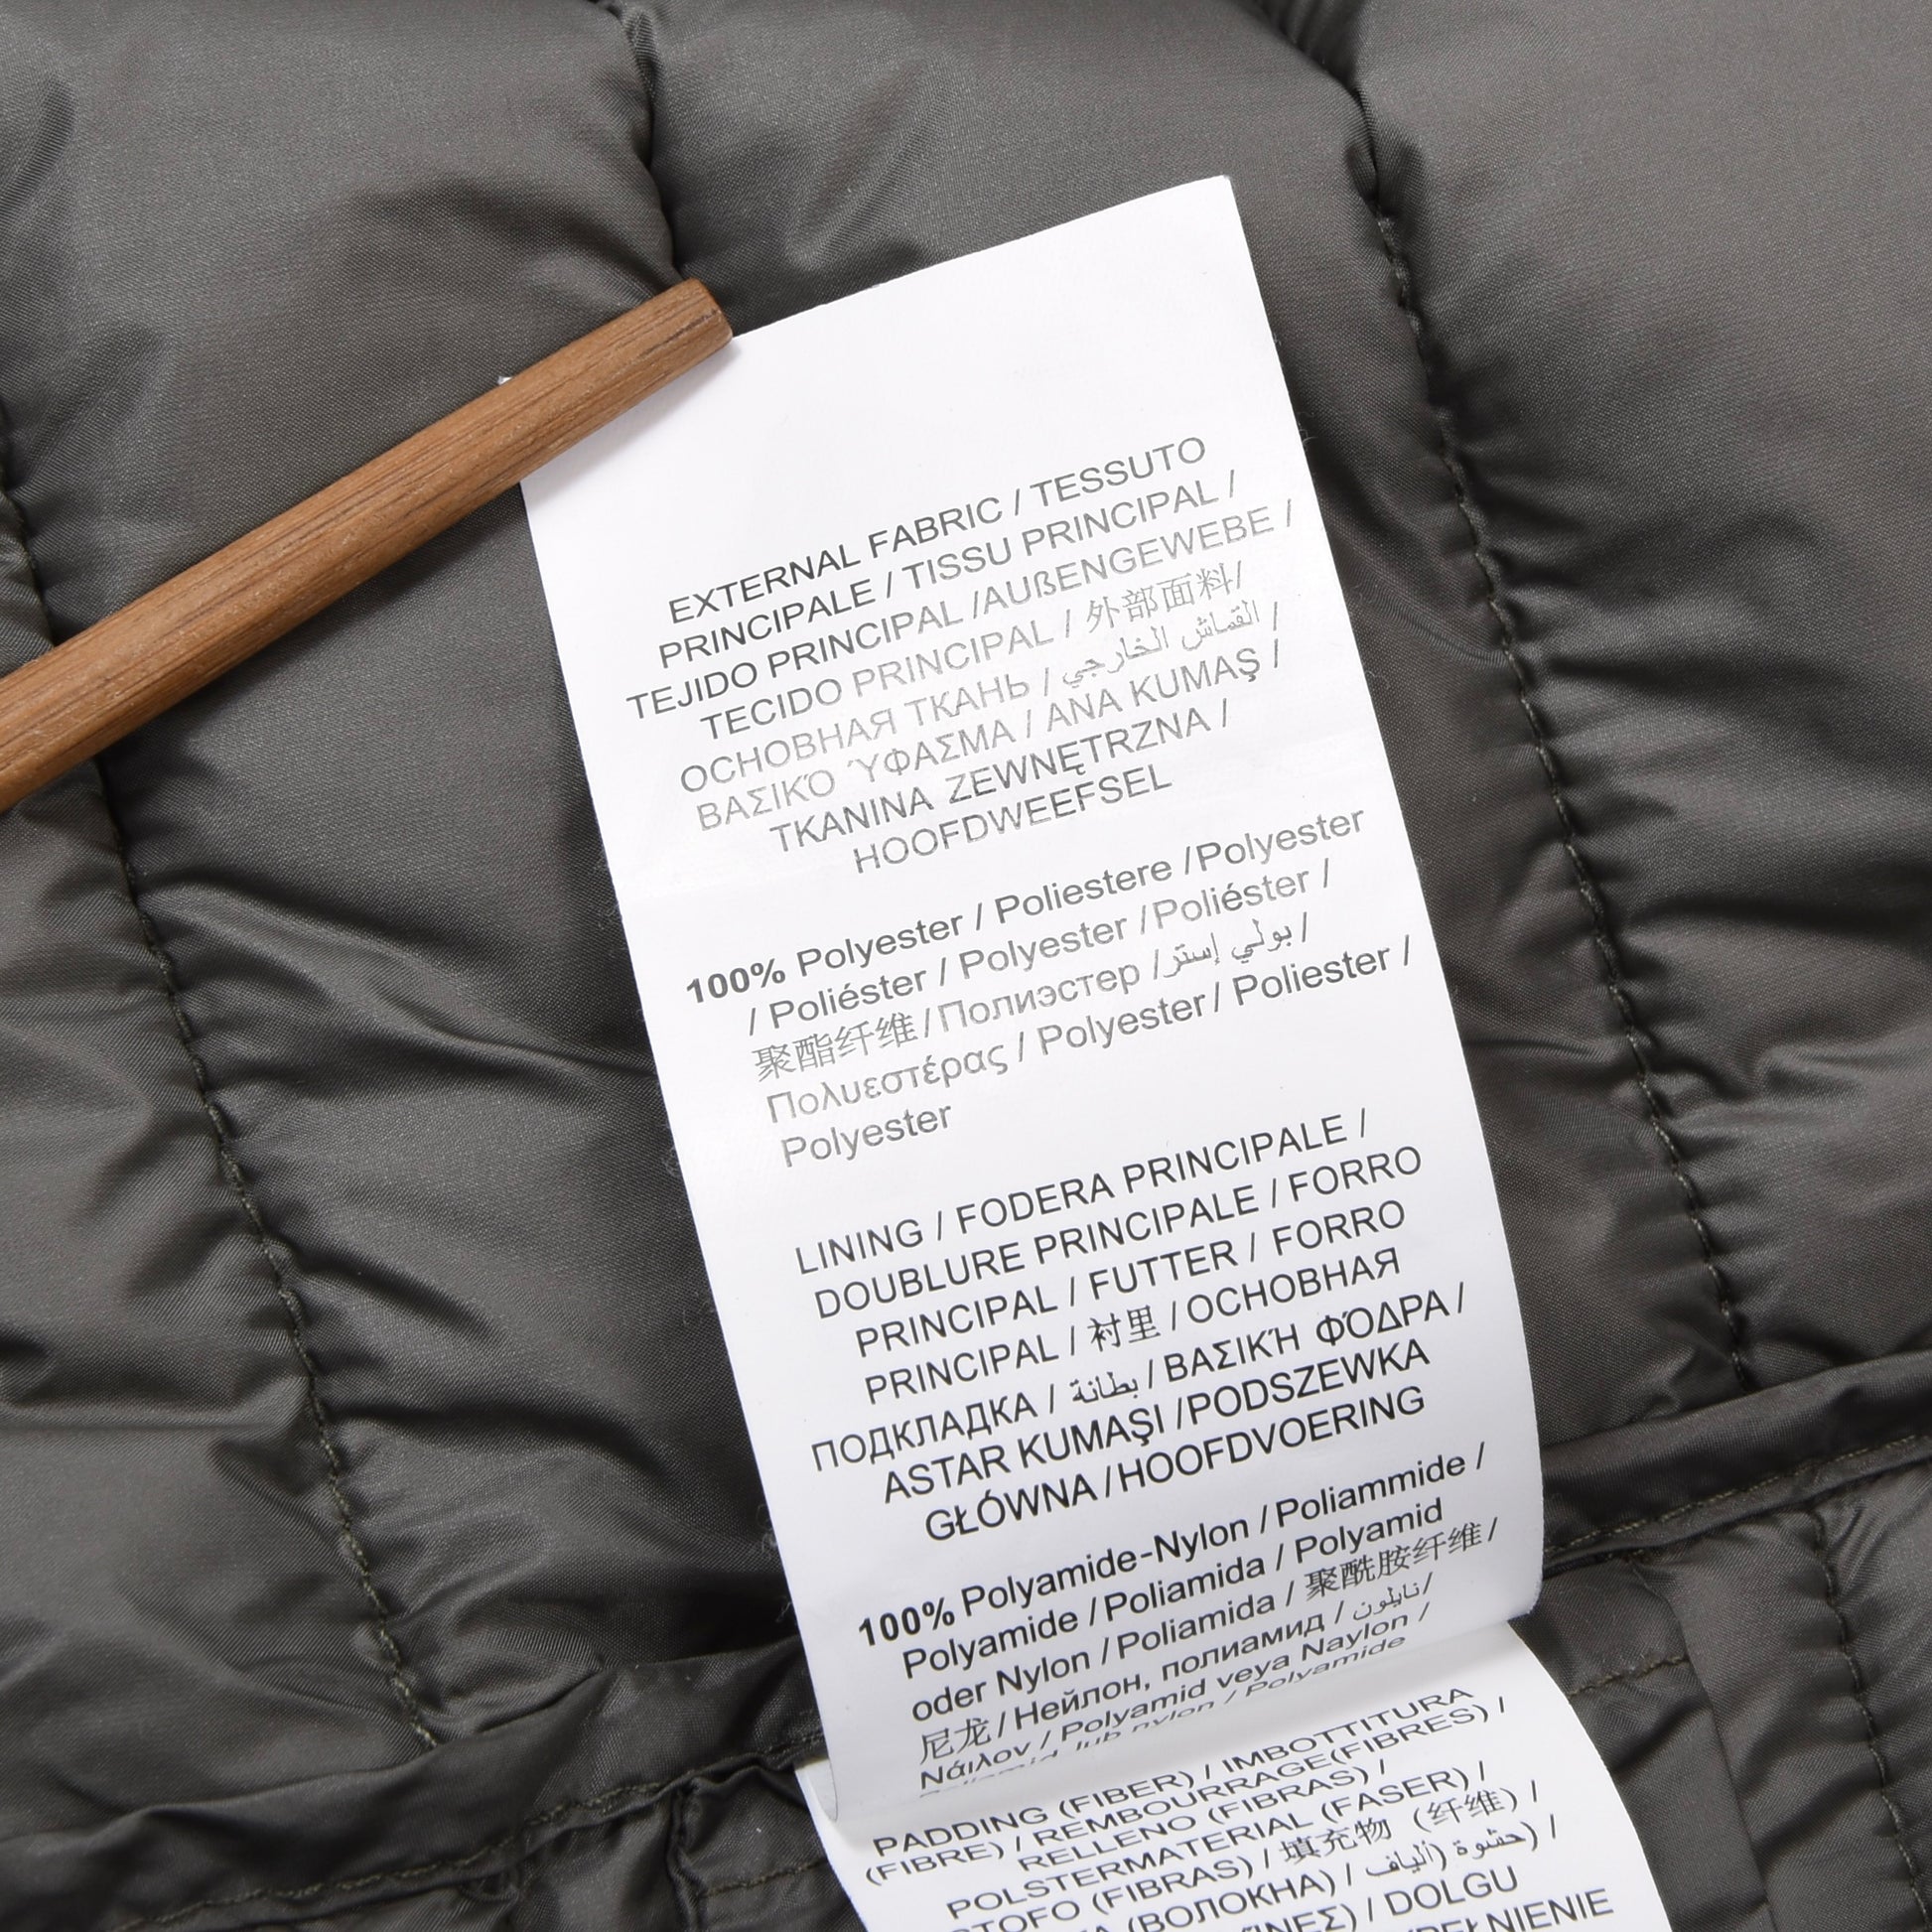 EXTERNAL FABRIC / TESSUTO
PRINCIPALE / TISSU PRINCIPAL /
TEJIDO PRINCIPAL /AUßENGEWEBE /
TECIDO PRINCIPAL / 外部面料/
ОСНОВНАЯ ТКАНЬ / القماش الخارجي /
ΒΑΣΙΚΌ ΎΦΑΣΜΑ / ANA KUMAŞ /
TKANINA ZEWNĘTRZNA /
HOOFDWEEFSEL
100% Polyester / Poliestere /Polyester
/ Poliéster / Polyester /Poliéster /
聚酯纤维/Полиэстер /بولي إستر /
Πολυεστέρας / Polyester/ Poliester /
Polyester
LINING / FODERA PRINCIPALE /
DOUBLURE PRINCIPALE / FORRO
PRINCIPAL / FUTTER / FORRO
PRINCIPAL / 衬里 / ОСНОВНАЯ
ПОДКЛАДКА / بطانة / ΒΑΣΙΚΉ ΦΌΔΡΑ /
ASTAR KUMAŞI /PODSZEWKA
GŁÓWNA /HOOFDVOERING
100% Polyamide-Nylon /Poliammide /
Polyamide /Poliamida / Polyamid
oder Nylon /Poliamida / 聚酰胺纤维/
尼龙/Нейлон, полиамид / نايلون/
Νάιλον / Polyamid veya Naylon /
lub nylon / Polyamide
PADDING (FIBER) / IMBOTTITURA
(FIBRE) / REMBOURRAGE(FIBRES) /
RELLENO (FIBRAS) /
POLSTERMATERIAL (FASER) /
(FIBRAS) / 填充物 (纤维) /
(ВОЛОКНА) / حشوة (ألياف) /
/ DOLGU